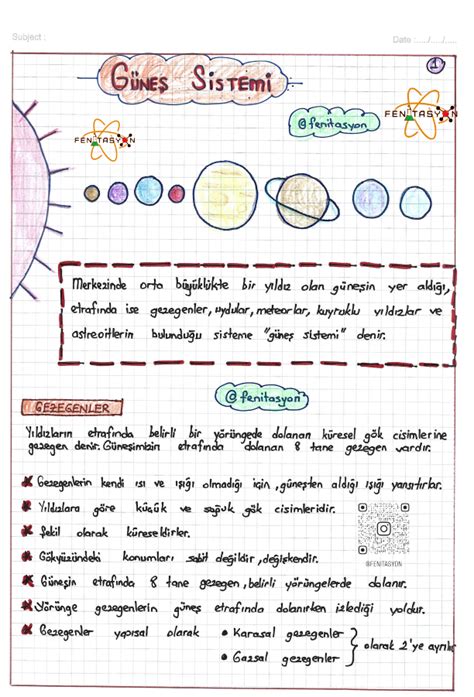 Subject :
Date :..../..../....
1
GÜNEŞ SİSTEMİ
@fenitasyon
FENİTASYON
FENİTASYON
Merkezinde orta büyüklükte bir yıldız olan güneşin yer aldığı,
etrafında ise gezegenler, uydular, meteorlar, kuyruklu yıldızlar ve
astreoitlerin bulunduğu sisteme "güneş sistemi" denir.
@fenitasyon
GEZEGENLER
Yıldızların etrafında belirli bir yörüngede dolanan küresel gök cisimlerine
gezegen denir. Güneşimizin etrafında dolanan 8 tane gezegen vardır.
Gezegenlerin kendi ısı ve ışığı olmadığı için, güneşten aldığı ışığı yansıtırlar.
Yıldızlara göre küçük ve soğuk gök cisimleridir.
Şekil olarak küreseldirler.
@FENITASYON
Gökyüzündeki konumları sabit değildir, değişkendir.
Güneşin etrafında 8 tane gezegen, belirli yörüngelerde dolanır.
Yörünge gezegenlerin güneş etrafında dolanırken izlediği yoldur.
Gezegenler yapısal olarak • Karasal gezegenler
• Gazsal gezegenler
olarak 2'ye ayrılır